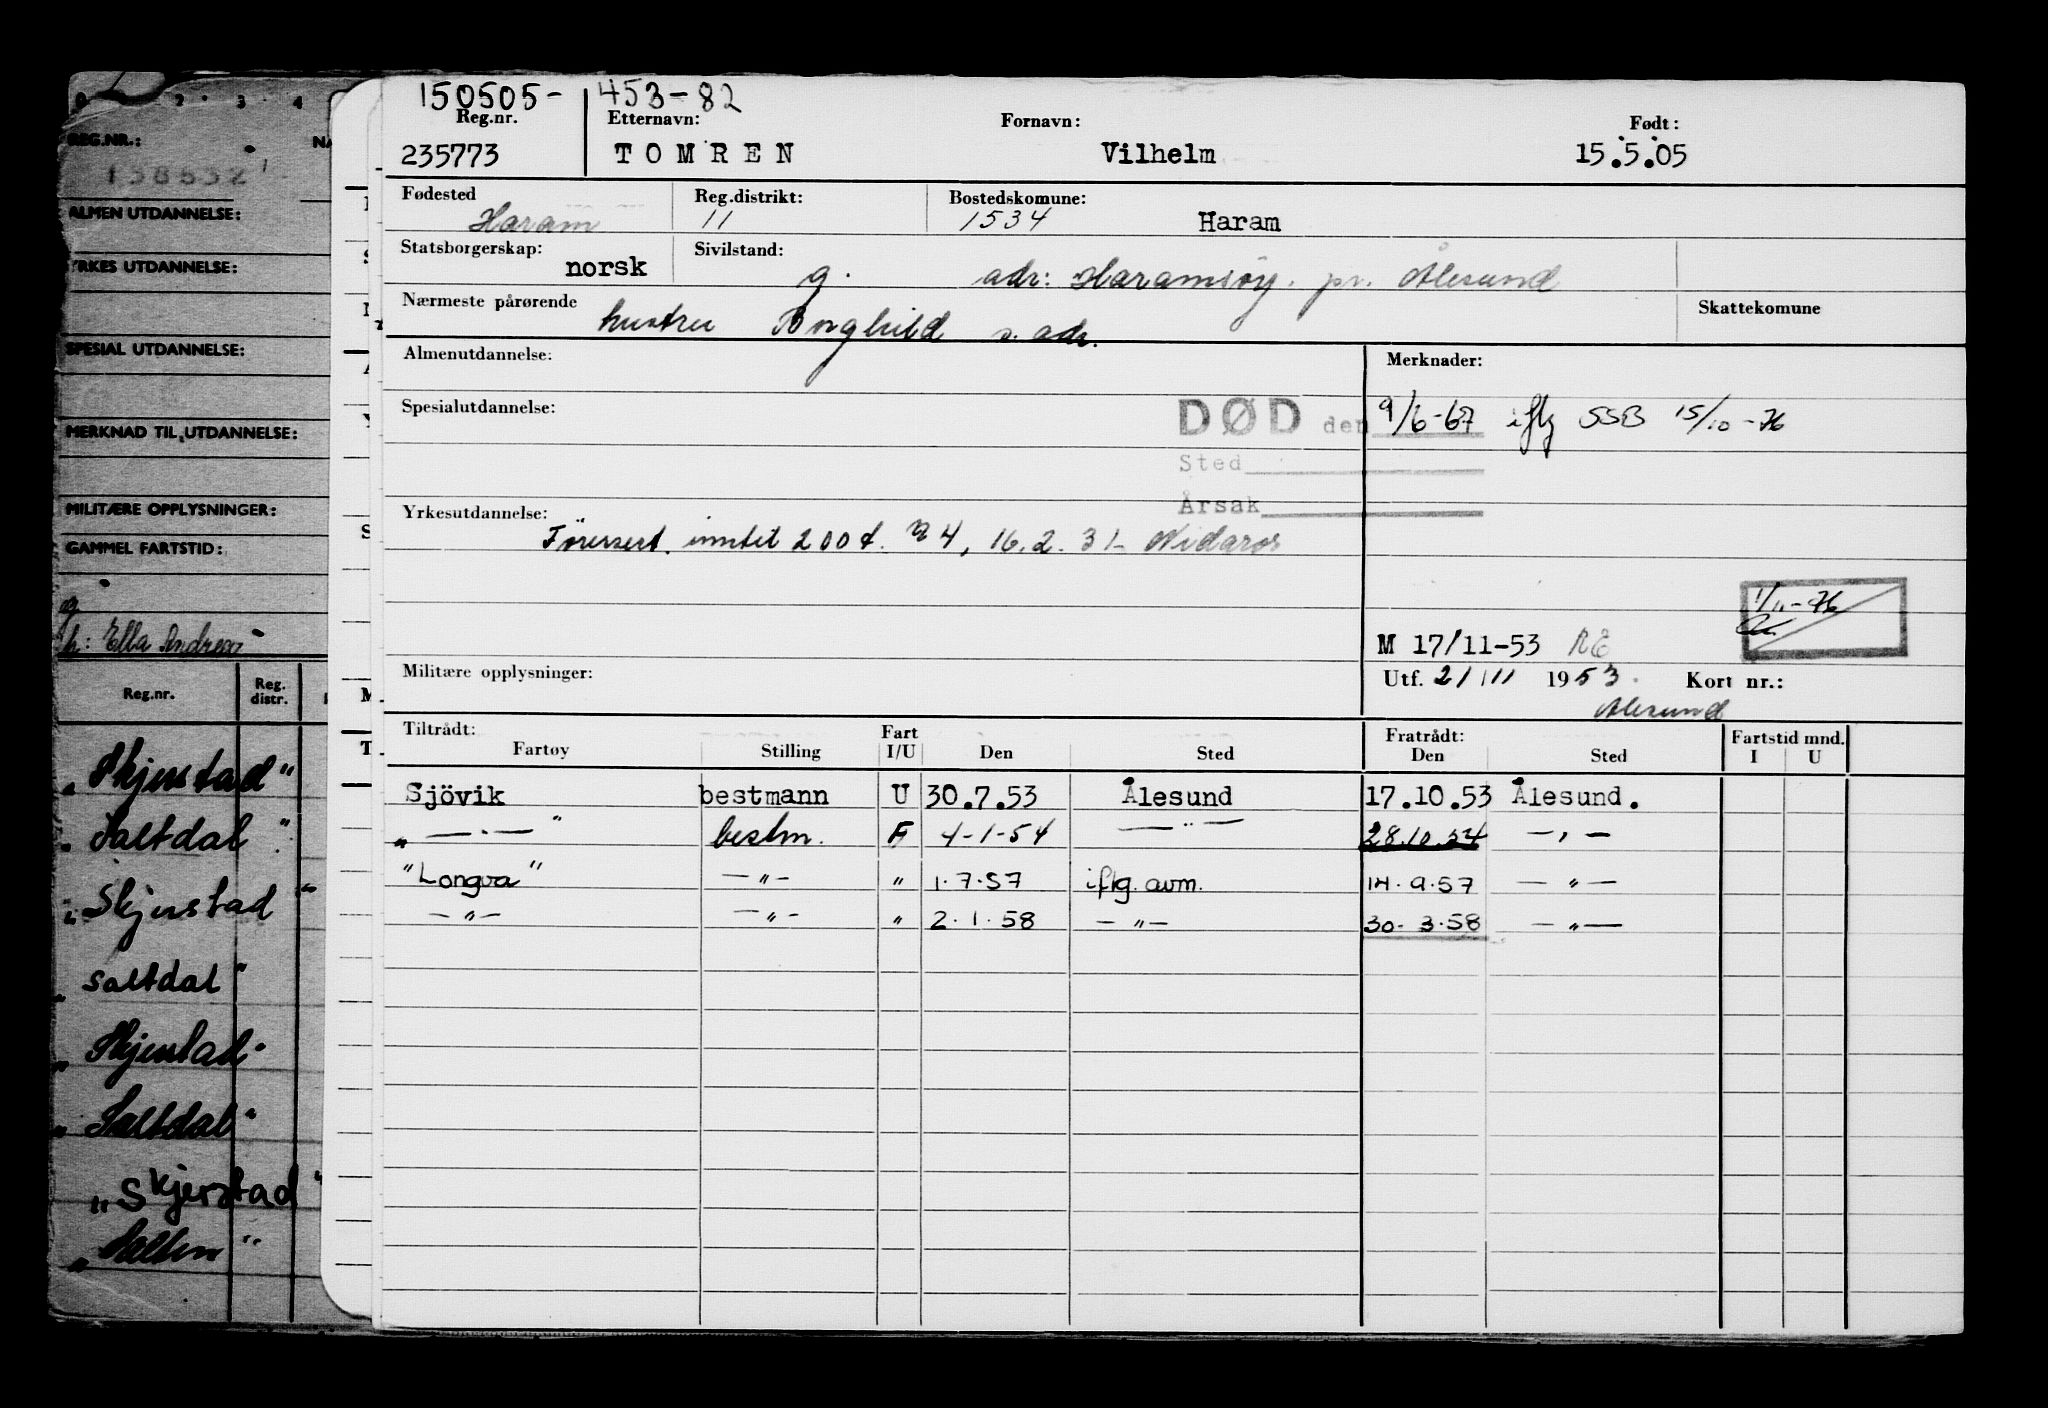 150505- 453-82
Reg.nr. Etternavn: Fornavn: Født:
235773 TOMREN Vilhelm 15.5.05
Fødested Reg.distrikt: Bostedskomune:
Haram 11 1534 Haram
Statsborgerskap: Sivilstand:
norsk g. adr: Haramsøy. pr. Ålesund
Nærmeste pårørende Skattekomune
hustru Borghild s. adr.
Almenutdannelse: Merknader:
Spesialutdannelse: DØD den 9/6-67 iflg SSB 15/10-76
Sted
Årsak
Yrkesutdannelse:
Førersert. inntil 200t. 16.2.31- Nidaros
1/11-76
M 17/11-53 RE
Militære opplysninger: Utf. 21/11 1953. Kort nr.:
Ålesund
Tiltrådt: Fart Fratrådt: Fartstid mnd.
Fartøy Stilling I/U Den Sted Den Sted I U
Sjövik bestmann U 30.7.53 Ålesund 17.10.53 Ålesund.
„ — · — " bestm. F 4-1-54 — " — 28.10.54 — „ —
"Longva" — „ — „ 1.7.57 iflg. avm. 14.9.57 — „ —
— „ — — „ — „ 2.1.58 — „ — 30-3.58 — „ —
0 2 3 4
REG.NR.: NA
138632
ALMEN UTDANNELSE:
YRKES UTDANNELSE:
SPESIAL UTDANNELSE:
MERKNAD TIL UTDANNELSE:
MILITÆRE OPPLYSNINGER:
GAMMEL FARTSTID:
g
h: Ella Andrea
Reg.nr. Reg. distr.
„Skjerstad"
„Saltdal"
„Skjerstad"
„Saltdal"
„Skjerstad"
„Saltdal"
„Skjerstad"
„Salten"